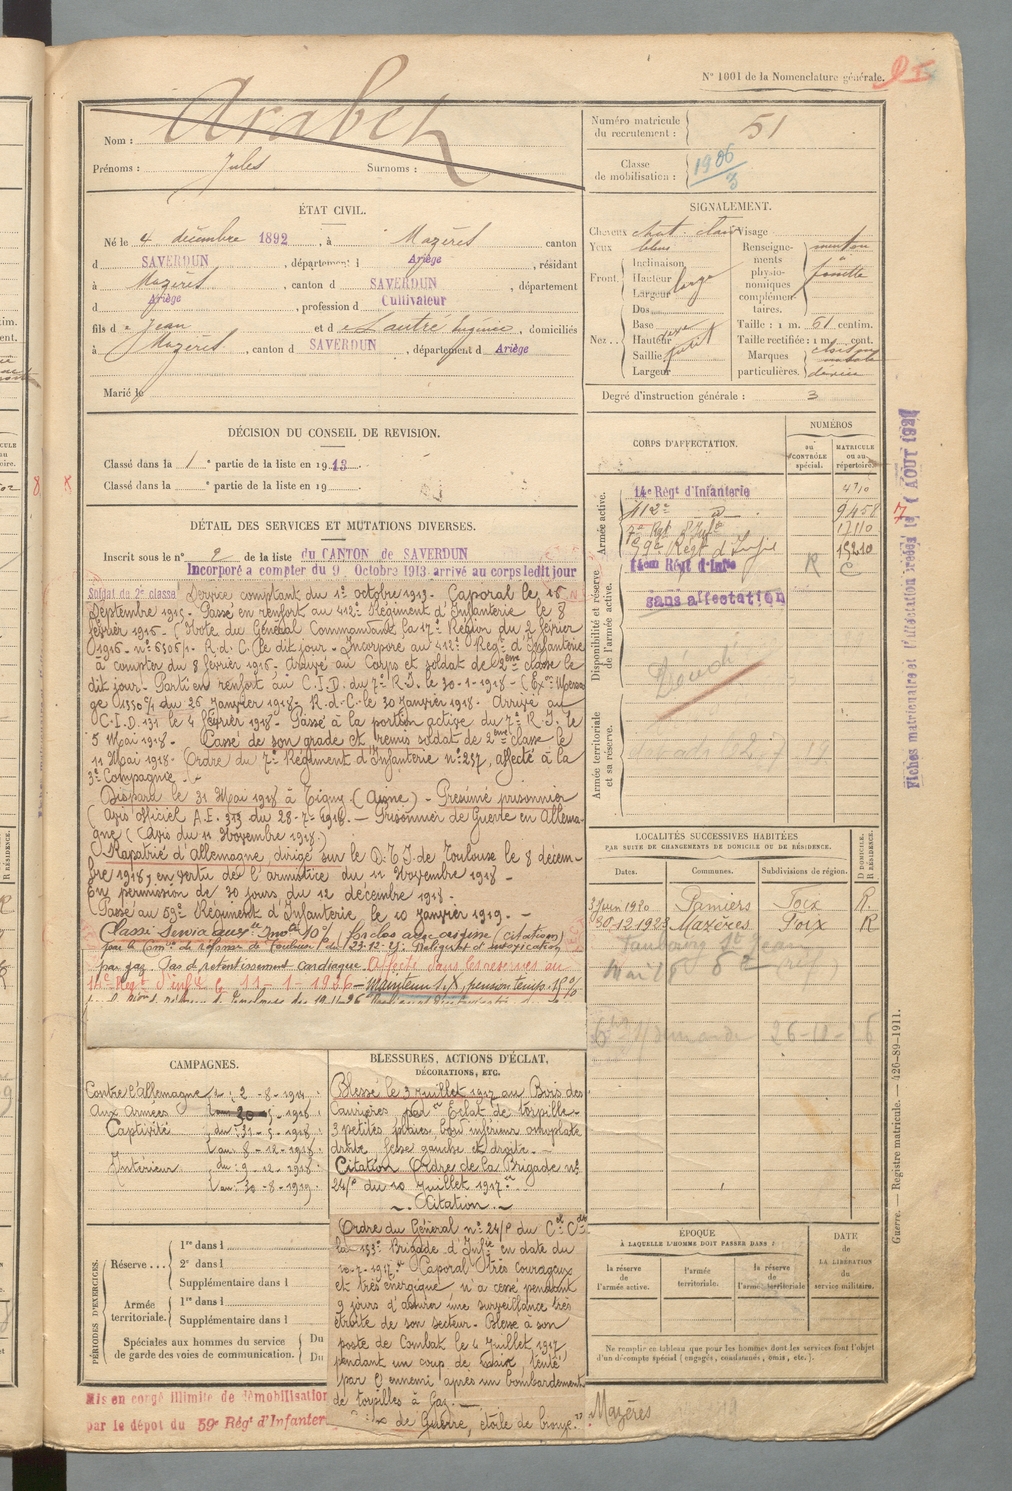 N° 1001 de la Nomenclature générale.
Nom : Arabet
Prénoms : Jules Surnoms :
Numéro matricule du recrutement : 51
Classe de mobilisation : 1906/3
ÉTAT CIVIL.
Né le 4 décembre 1892, à Mazères canton
d SAVERDUN, département d Ariège, résidant
à Mazères, canton d SAVERDUN, département
d Ariège, profession d Cultivateur
fils de Jean et de Lautré Eugénie, domiciliés
à Mazères, canton d SAVERDUN, département d Ariège
Marié le
SIGNALEMENT.
Cheveux chat. clair Visage
Yeux bleus
Front. Inclinaison
Hauteur
Largeur large
Nez. Dos
Base
Hauteur
Saillie
Largeur
Renseignements physionomiques complémentaires. menton à fossette
Taille : 1 m. 61 centim.
Taille rectifiée : 1 m. cent.
Marques particulières.
Degré d'instruction générale : 3
DÉCISION DU CONSEIL DE REVISION.
Classé dans la 1e partie de la liste en 1913.
Classé dans la e partie de la liste en 19
DÉTAIL DES SERVICES ET MUTATIONS DIVERSES.
Inscrit sous le n° 2 de la liste du CANTON de SAVERDUN
Incorporé a compter du 9 Octobre 1913 arrivé au corps ledit jour
Soldat de 2e classe Service comptant du 1er octobre 1913. Caporal le 16
Septembre 1915. Passé en renfort au 412e Régiment d'Infanterie le 8
février 1916. (Note du Général Commandant la 17e Région du 2 février
1916 - n° 6306/1. R.d.C. le dit jour - Incorporé au 412e Regt d'Infanterie
à compter du 8 février 1916. Arrivé au Corps et soldat de 2ème classe le
dit jour. Parti en renfort au C.I.D. du 7e R.I. le 30-1-1918 - (Ex. Messa
ge 01550 % du 26 Janvier 1918 - R.d.C. le 30 Janvier 1918. Arrivé au
C.I.D. 131 le 4 février 1918 - Passé à la portion active du 7e R.I. le
5 Mai 1918. Cassé de son grade et remis soldat de 2ème classe le
11 Mai 1918. Ordre du 7e Régiment d'Infanterie n° 257, affecté à la
3e Compagnie.
Disparu le 31 Mai 1918 à Tigny (Aisne) - Présumé prisonnier
(Avis officiel A.E. 373 du 28-7-1918. - Prisonnier de Guerre en Allema-
gne (Avis du 11 Novembre 1918.)
Rapatrié d'Allemagne, dirigé sur le D.T.I. de Toulouse le 8 décem-
bre 1918, en vertu de l'armistice du 11 Novembre 1918 -
En permission de 30 jours du 12 décembre 1918 -
Passé au 59e Régiment d'Infanterie le 10 Janvier 1919. -
Classé Service auxre 10%
par la Comon de réforme de Toulouse 1° du 23-12-25. Reliquat d'intoxication
par gaz. Pas de retentissement cardiaque. Affecté dans les réserves au
14e Regt d'infie le 11-1-1926 - Maintenu S.X, pension temp. 10%
CORPS D'AFFECTATION.
NUMÉROS
au CONTRÔLE spécial.
MATRICULE ou au répertoire.
Armée active.
14e Régt d'Infanterie 4710
412e d° 9458
7e Rgt d'Infie 17110
59e Regt d'Infie 15210
Disponibilité et réserve de l'armée active.
14eme Régt d'Infie R C
sans affectation
Armée territoriale et sa réserve.
Fiches matriculaire et d'affectation
AOUT 1927
LOCALITÉS SUCCESSIVES HABITÉES
PAR SUITE DE CHANGEMENTS DE DOMICILE OU DE RÉSIDENCE.
Dates. Communes. Subdivisions de région. D DOMICILE. R RÉSIDENCE.
3 Juin 1920 Pamiers Foix R.
30.12.1923 Mazères Foix R
faubourg St Jean
26-10-
CAMPAGNES.
Contre l'Allemagne du : 2-8-1914
Aux Armées au 30-5-1918
Captivité du : 31-5-1918
au : 8-12-1918
Intérieur du : 9-12-1918
au : 30-8-1919
BLESSURES, ACTIONS D'ÉCLAT, DÉCORATIONS, ETC.
Blessé le 3 juillet 1917 au Bois des
Caurières par Éclat de torpille -
3 petites plaies, bord inférieur omoplate
droite, fesse gauche et droite. -
Citation Ordre de la Brigade n°
24/P du 10 Juillet 1917.
Citation
Ordre du Général n° 24/P du Cel Cdt
la 133e Brigade d'Infie en date du
10-7-1917. "Caporal très courageux
et très énergique n'a cessé pendant
9 jours d'assurer une surveillance très
étroite de son secteur. Blessé à son
poste de Combat le 4 Juillet 1917
pendant un coup de main, tenté
par l'ennemi après un bombardement
de torpilles à Gaz. -
Cx de Guerre, étoile de bronze."
PÉRIODES D'EXERCICES.
Réserve... 1re dans l
2e dans l
Supplémentaire dans l
Armée territoriale. 1re dans l
Supplémentaire dans l
Spéciales aux hommes du service de garde des voies de communication. Du
Du
ÉPOQUE
À LAQUELLE L'HOMME DOIT PASSER DANS :
la réserve de l'armée active.
l'armée territoriale.
la réserve de l'armée territoriale
DATE de LA LIBÉRATION du service militaire.
Ne remplir ce tableau que pour les hommes dont les services font l'objet
d'un décompte spécial (engagés, condamnés, omis, etc.).
Mis en congé illimité de démobilisation
par le dépôt du 59e Régt d'Infanterie
Mazères
Guerre. — Registre matricule. — 426-89-1911.